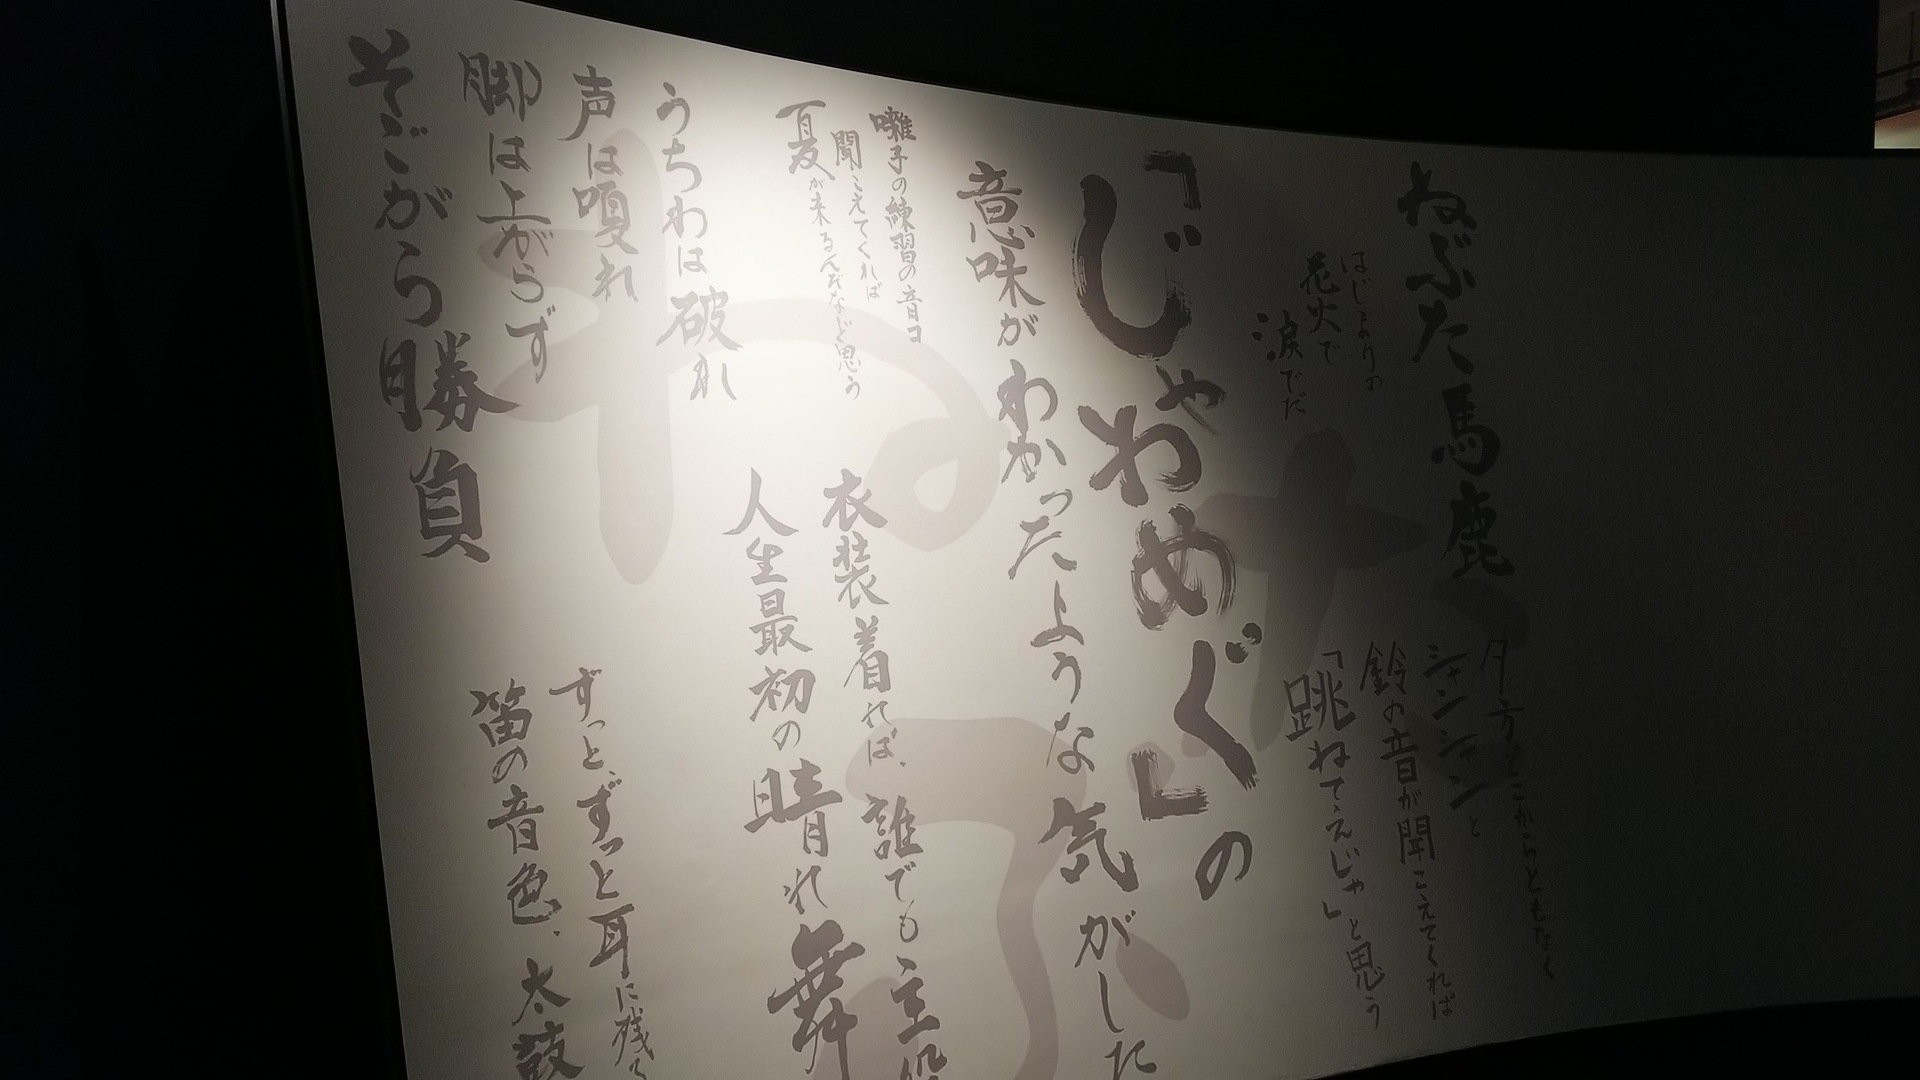 ねぶた馬鹿
夕方どこからともなく
シャンシャンと
鈴の音が聞こえてくれば
「跳ねてえじゃ」と思う
はじまりの
花火で
涙でだ
「じゃわめぐ」の
意味がわかったような気がした
囃子の練習の音コ
聞こえてくれば
夏が来るんだなど思う
衣装着れば、誰でも主役
人生最初の晴れ舞
うちわは破れ
声は嗄れ
脚は上がらず
そごがら勝負
ずっと、ずっと耳に残る
笛の音色、太鼓
ねぶた